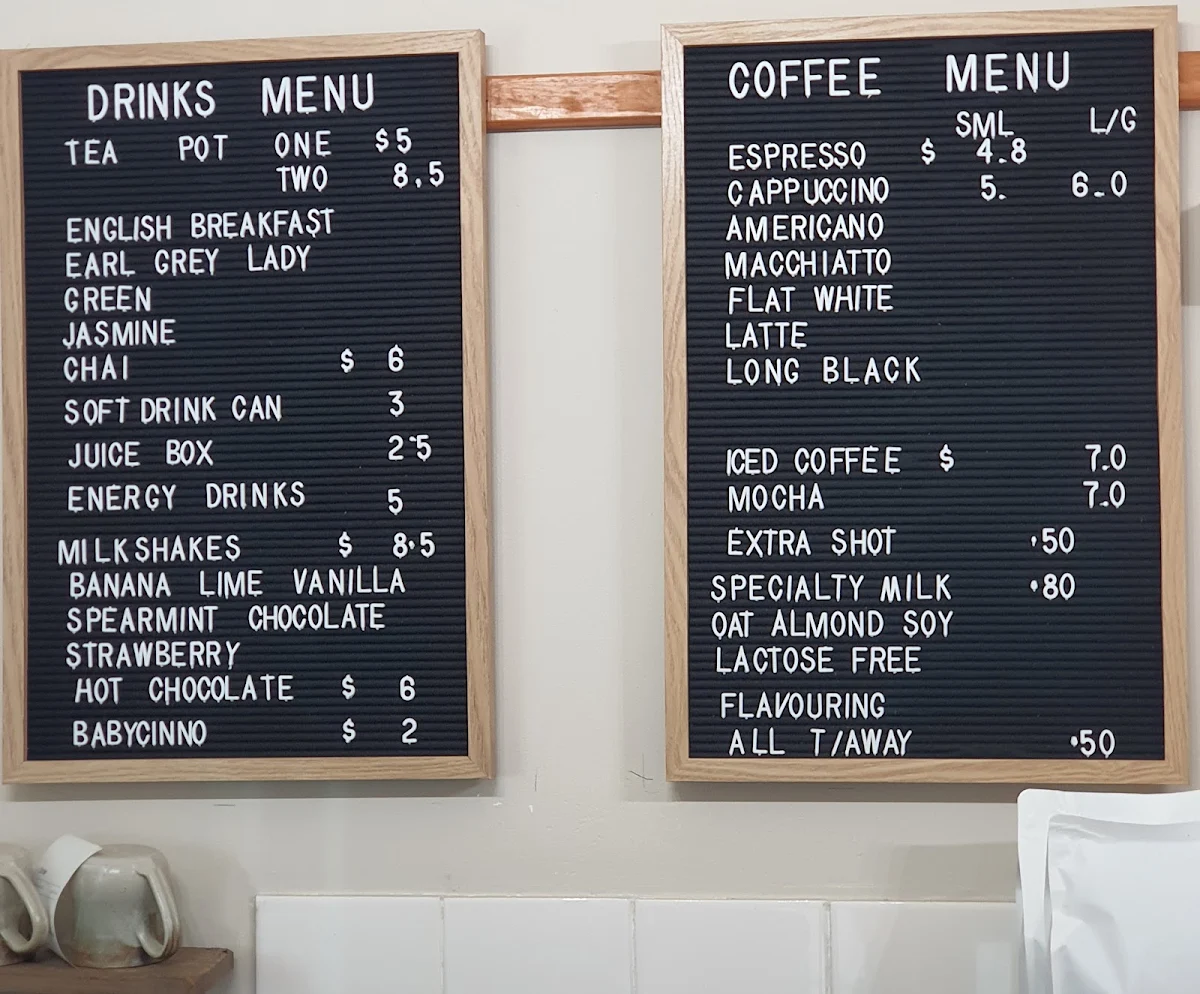 DRINKS MENU
TEA POT ONE $5
TWO 8.5
ENGLISH BREAKFAST
EARL GREY LADY
GREEN
JASMINE
CHAI $ 6
SOFT DRINK CAN 3
JUICE BOX 2.5
ENERGY DRINKS 5
MILKSHAKES $ 8.5
BANANA LIME VANILLA
SPEARMINT CHOCOLATE
STRAWBERRY
HOT CHOCOLATE $ 6
BABYCINNO $ 2
COFFEE MENU
SML L/G
ESPRESSO $ 4.8
CAPPUCCINO 5. 6.0
AMERICANO
MACCHIATTO
FLAT WHITE
LATTE
LONG BLACK
ICED COFFEE $ 7.0
MOCHA 7.0
EXTRA SHOT .50
SPECIALTY MILK .80
OAT ALMOND SOY
LACTOSE FREE
FLAVOURING
ALL T/AWAY .50